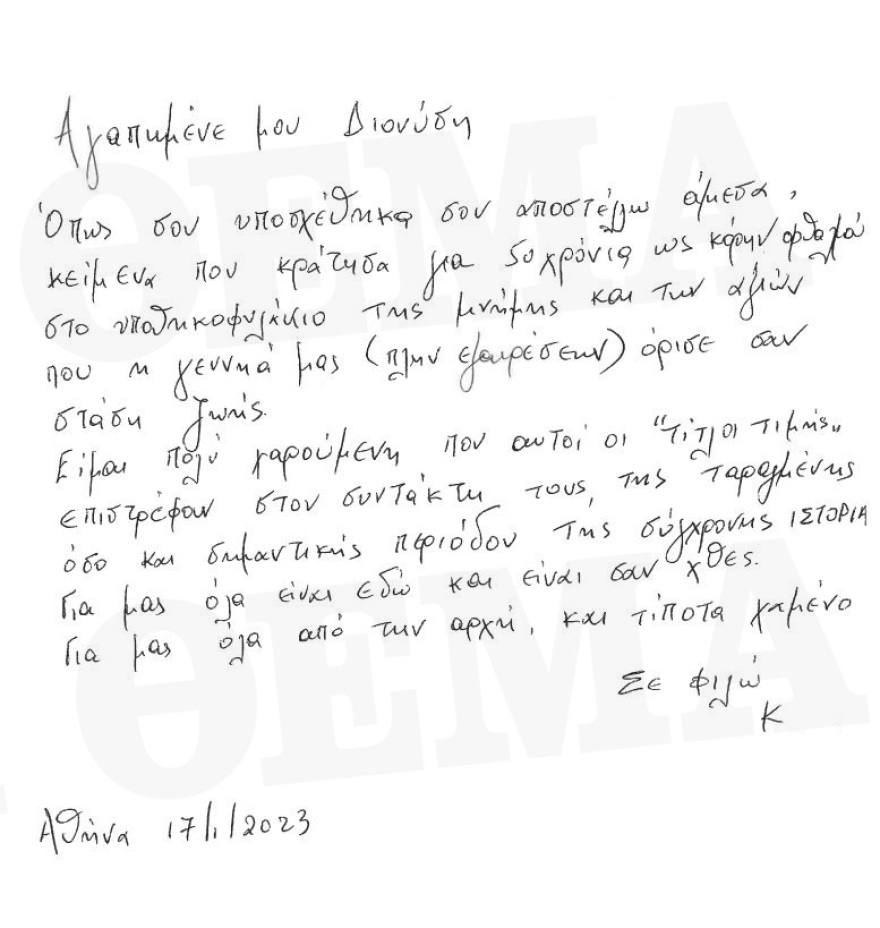 Αγαπημένε μου Διονύση
Όπως σου υποσχέθηκα σου αποστέλω άμεσα,
κείμενα που κράτησα για 50 χρόνια ως κόρην οφθαλμού
στο υποθηκοφυλάκιο της μνήμης και των αξιών
που η γεννηά μας (πλην εξαιρέσεων) όρισε σαν
στάση ζωής.
Είμαι πολύ χαρούμενη που αυτοί οι "τίτλοι τιμής"
επιστρέφουν στον συντάκτη τους, της ταραγμένης
όσο και σημαντικής περιόδου της σύγχρονης ΙΣΤΟΡΙΑ
Για μας όλα είναι εδώ και είναι σαν χθες.
Για μας όλα από την αρχή, και τίποτα χαμένο
Σε φιλώ
Κ
Αθήνα 17/1/2023
ΘΕΜΑ
ΘΕΜΑ